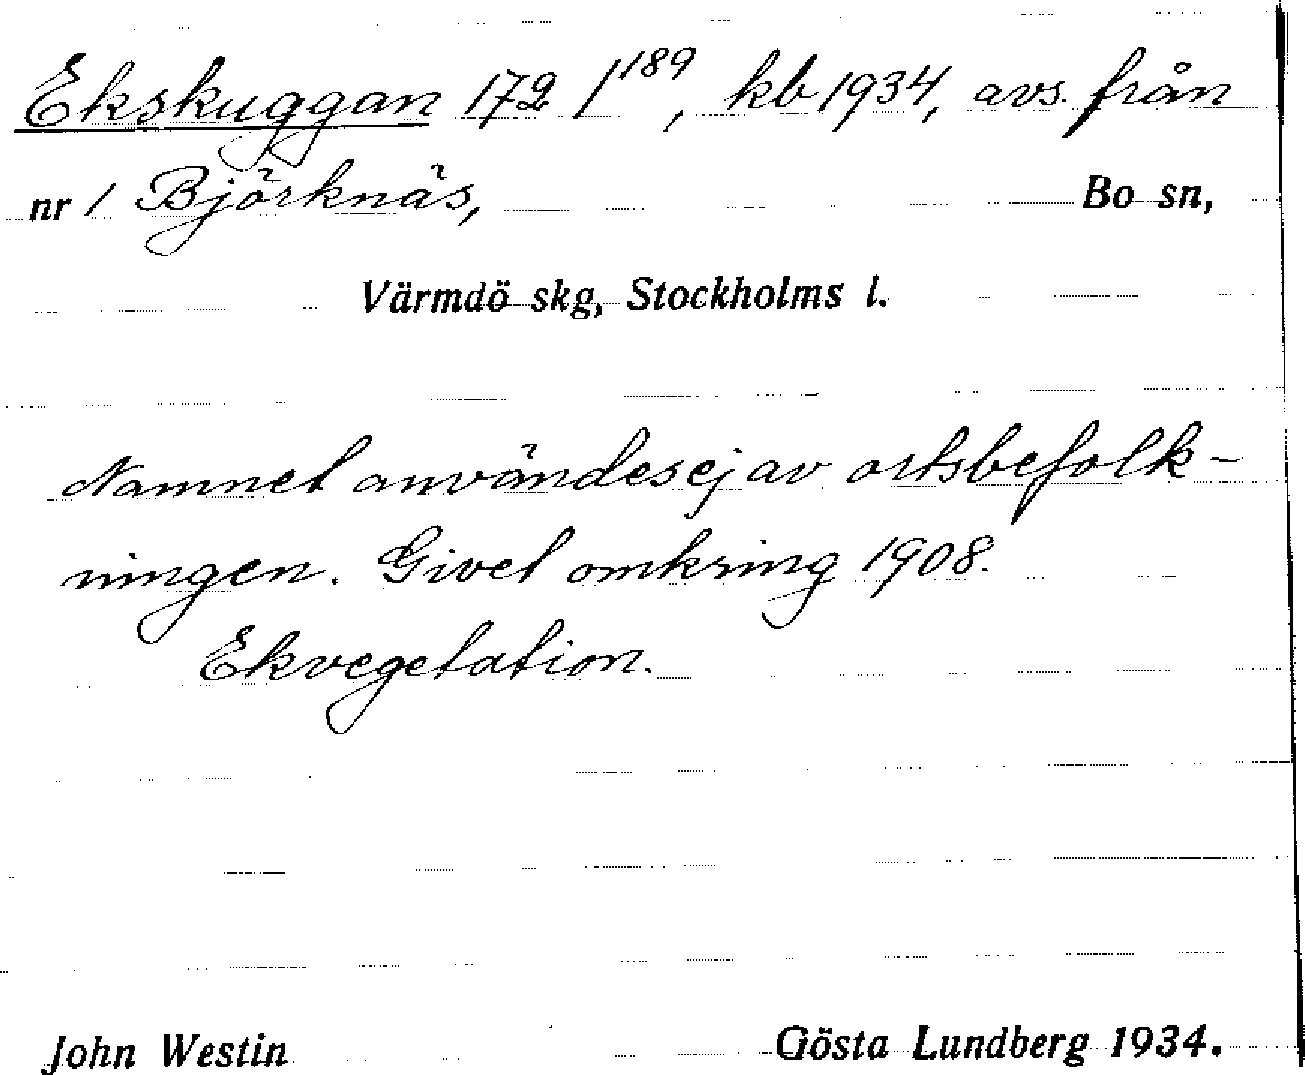 Ekskuggan 172 1¹⁸⁹, kb 1934, avs. från
nr 1 Björknäs, Bo sn,
Värmdö skg, Stockholms l.
Namnet användes ej av ortsbefolk-
ningen. Givet omkring 1908.
Ekvegetation.
John Westin Gösta Lundberg 1934.